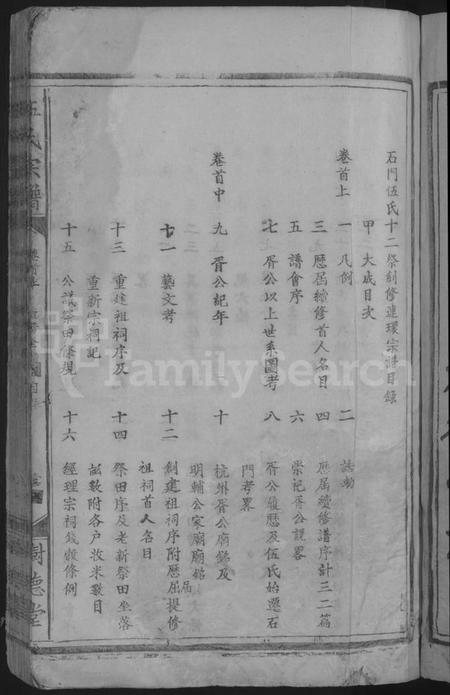 石門伍氏十二祭創修連環宗譜目錄
甲 大成目次
卷首上 一 凡例 二 誥勅
三 歷屆續修首人名目 四 歷屆續修譜序計三二篇
五 譜會序 六 崇祀胥公說畧
七 胥公以上世系圖考 八 胥公履歷及伍氏始遷石
門考畧
卷首中 九 胥公紀年 十 杭州胥公廟錄及
明輔公家廟廟錧
十一 藝文考 十二 創建祖祠序附歷屆提修
祖祠首人名目
十三 重建祖祠序及 十四 祭田序及老新祭田坐落
重新宗祠記 畝數附各户收米數目
十五 公議祭田條規 十六 經理宗祠錢穀條例
伍氏宗譜
樹德堂
FamilySearch